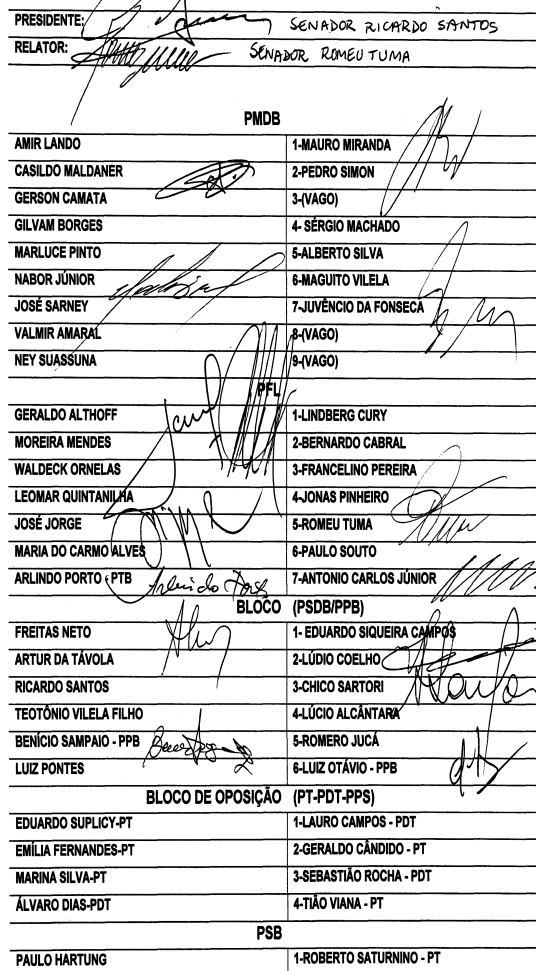 PRESIDENTE: SENADOR RICARDO SANTOS
RELATOR: SENADOR ROMEU TUMA
PMDB
AMIR LANDO 1-MAURO MIRANDA
CASILDO MALDANER 2-PEDRO SIMON
GERSON CAMATA 3-(VAGO)
GILVAM BORGES 4- SÉRGIO MACHADO
MARLUCE PINTO 5-ALBERTO SILVA
NABOR JÚNIOR 6-MAGUITO VILELA
JOSÉ SARNEY 7-JUVÊNCIO DA FONSECA
VALMIR AMARAL 8-(VAGO)
NEY SUASSUNA 9-(VAGO)
PFL
GERALDO ALTHOFF 1-LINDBERG CURY
MOREIRA MENDES 2-BERNARDO CABRAL
WALDECK ORNELAS 3-FRANCELINO PEREIRA
LEOMAR QUINTANILHA 4-JONAS PINHEIRO
JOSÉ JORGE 5-ROMEU TUMA
MARIA DO CARMO ALVES 6-PAULO SOUTO
ARLINDO PORTO - PTB Arlindo Porto 7-ANTONIO CARLOS JÚNIOR
BLOCO (PSDB/PPB)
FREITAS NETO 1- EDUARDO SIQUEIRA CAMPOS
ARTUR DA TÁVOLA 2-LÚDIO COELHO
RICARDO SANTOS 3-CHICO SARTORI
TEOTÔNIO VILELA FILHO 4-LÚCIO ALCÂNTARA
BENÍCIO SAMPAIO - PPB 5-ROMERO JUCÁ
LUIZ PONTES 6-LUIZ OTÁVIO - PPB
BLOCO DE OPOSIÇÃO (PT-PDT-PPS)
EDUARDO SUPLICY-PT 1-LAURO CAMPOS - PDT
EMÍLIA FERNANDES-PT 2-GERALDO CÂNDIDO - PT
MARINA SILVA-PT 3-SEBASTIÃO ROCHA - PDT
ÁLVARO DIAS-PDT 4-TIÃO VIANA - PT
PSB
PAULO HARTUNG 1-ROBERTO SATURNINO - PT